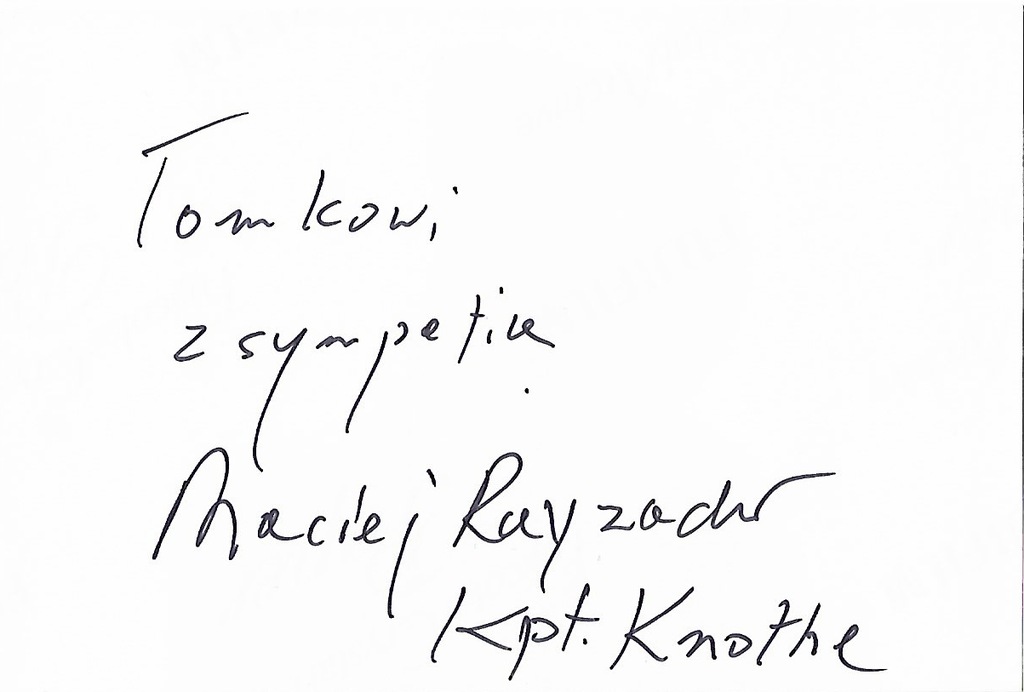 Tomkowi
z sympatią
Maciej Rayzacher
Kpt. Knothe